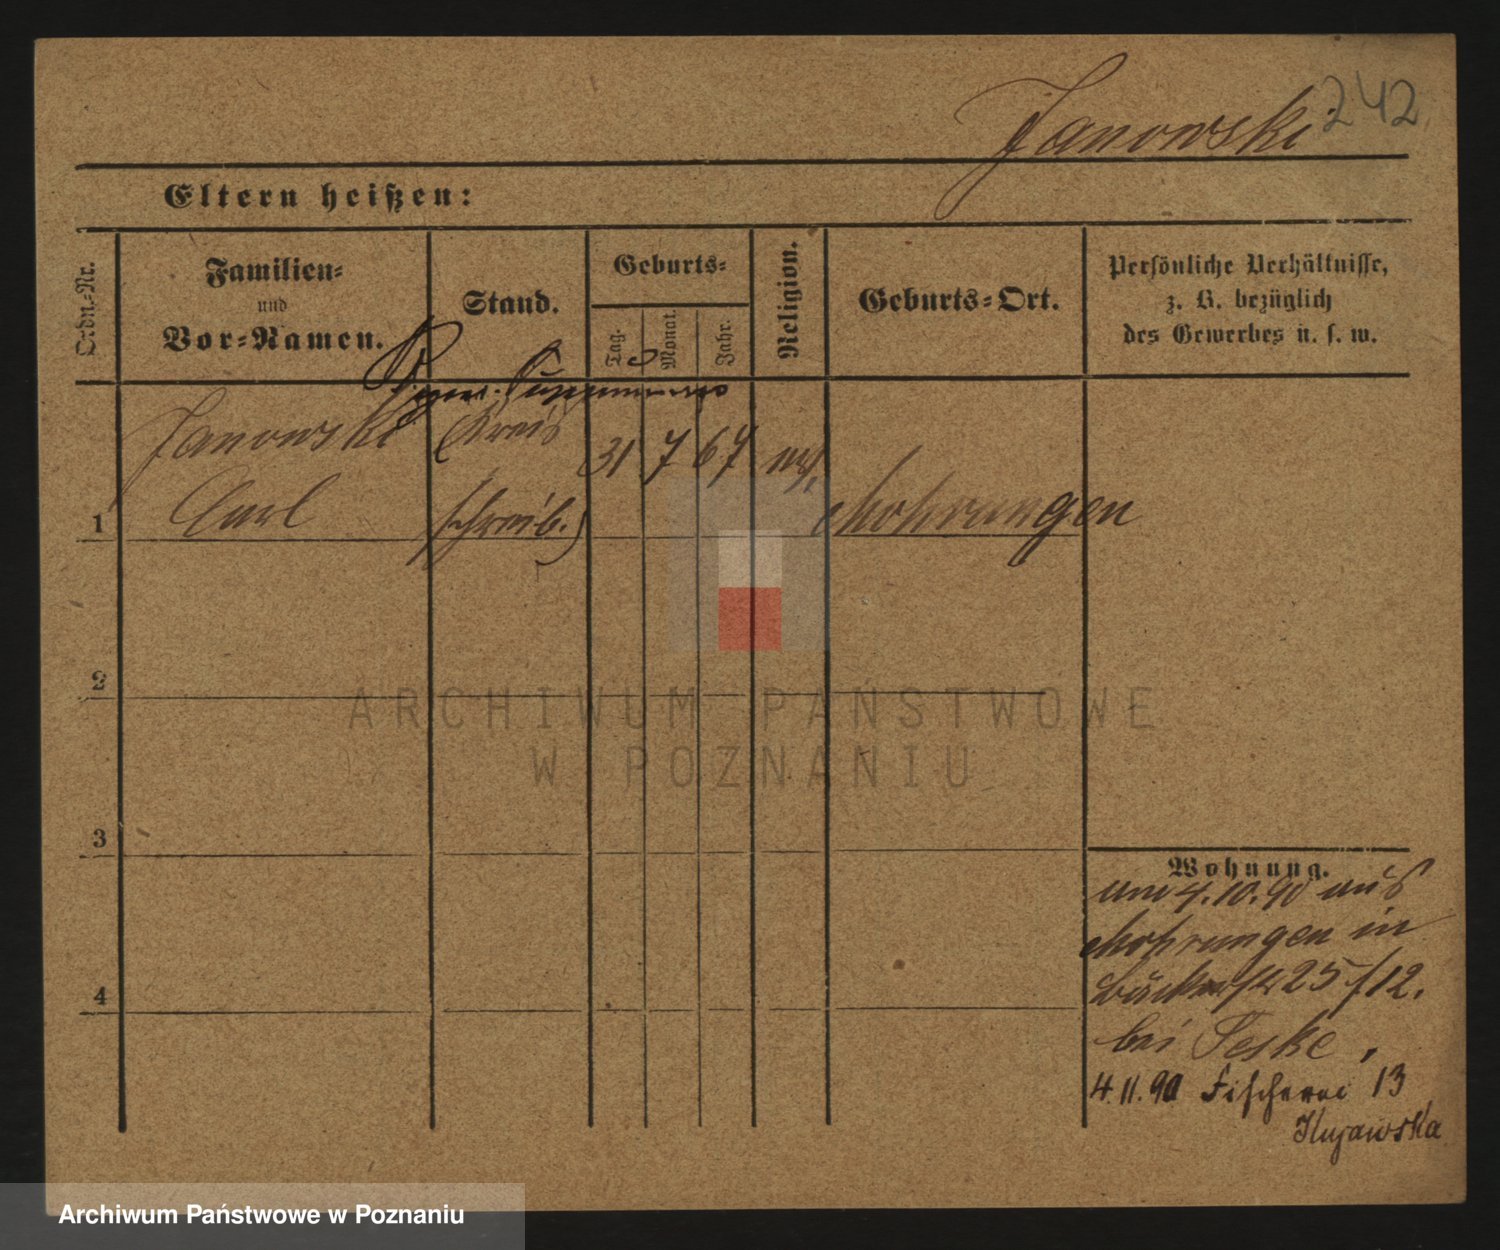 Janowski 242
Eltern heißen:
Ordn.-Nr.
Familien-
und
Vor-Namen.
Stand.
Geburts-
Tag.
Monat.
Jahr.
Religion.
Geburts-Ort.
Persönliche Verhältnisse,
z. B. bezüglich
des Gewerbes u. s. w.
Janowski
Carl
(Kreis
schreib.)
31 7 67
Mohrungen
1
2
3
4
Wohnung.
am 4.10.90 aus
Mohrungen in
25/12.
bei Teske,
4.11.90 Fischerei 13
Kujawska
ARCHIWUM PAŃSTWOWE
W POZNANIU
Archiwum Państwowe w Poznaniu